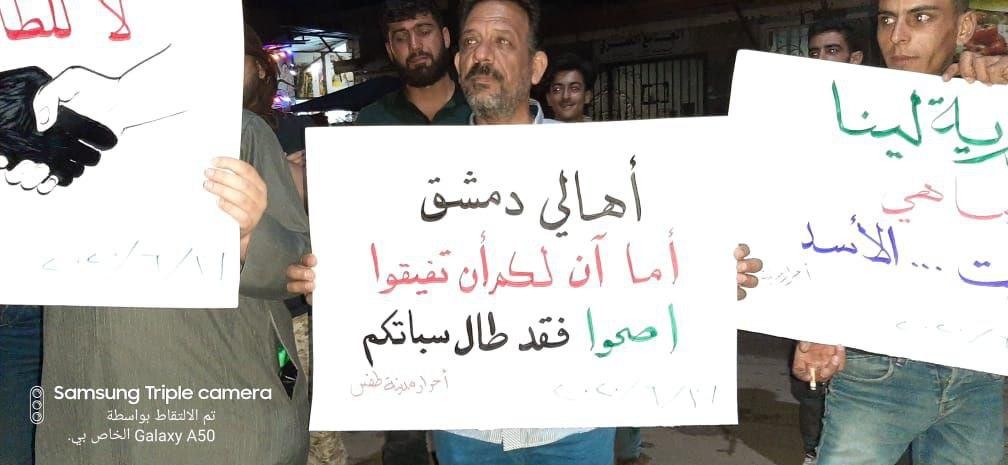 لا للطا
٢٠٢٠/٦/٢١
أهالي دمشق
أما آن لكم أن تفيقوا
اصحوا فقد طال سباتكم
أحرار مدينة طفس
٢٠٢٠/٦/٢١
رية لينا
ما هي
ت ... الأسد
أحرار مدينة
٢٠٢٠/٦
Samsung Triple camera
تم الالتقاط بواسطة
Galaxy A50 الخاص بي.